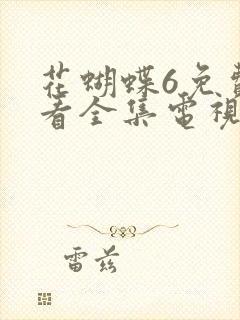 花蝴蝶6免費
看全集電視
雷兹